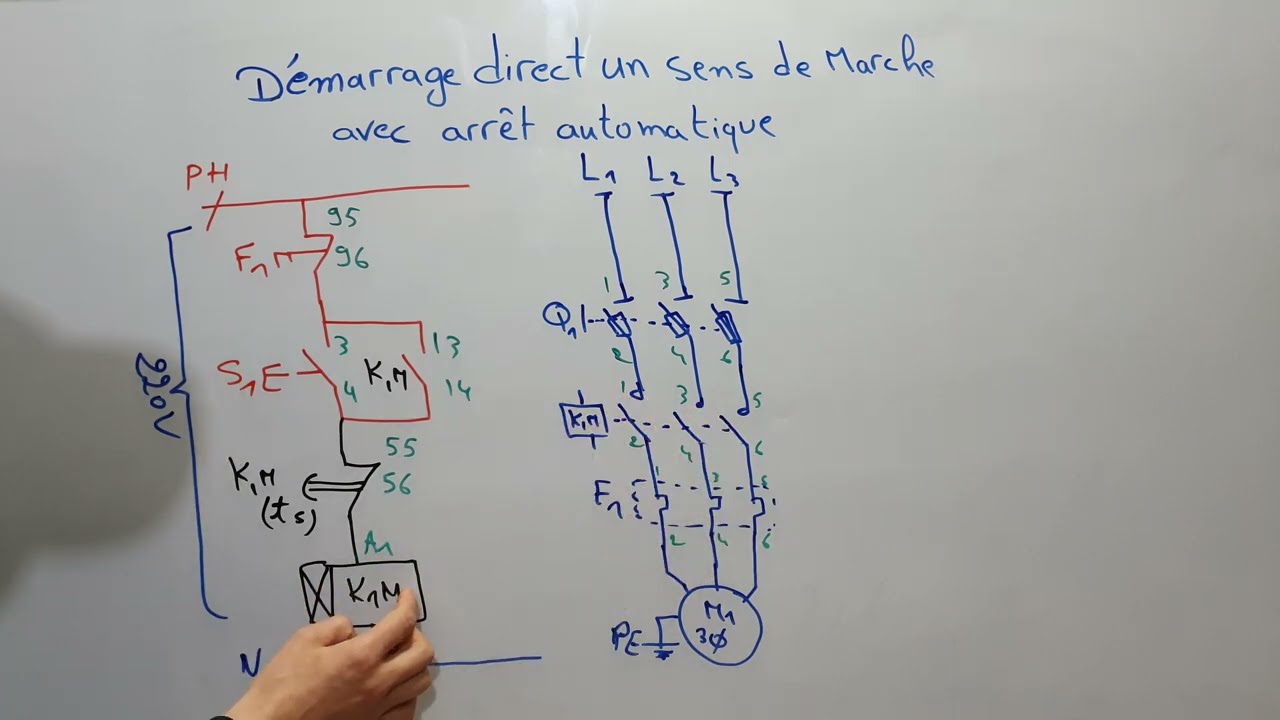 Démarrage direct un sens de Marche
avec arrêt automatique
PH
95
F1
96
3
13
S1E
K1M
4
14
55
K1M
56
(ts)
A1
K1M
N
220V
L1 L2 L3
1 3 5
Q1
2 4 6
1 3 5
K1M
2 4 6
1 3 5
F1
2 4 6
M1
3Ø
PE